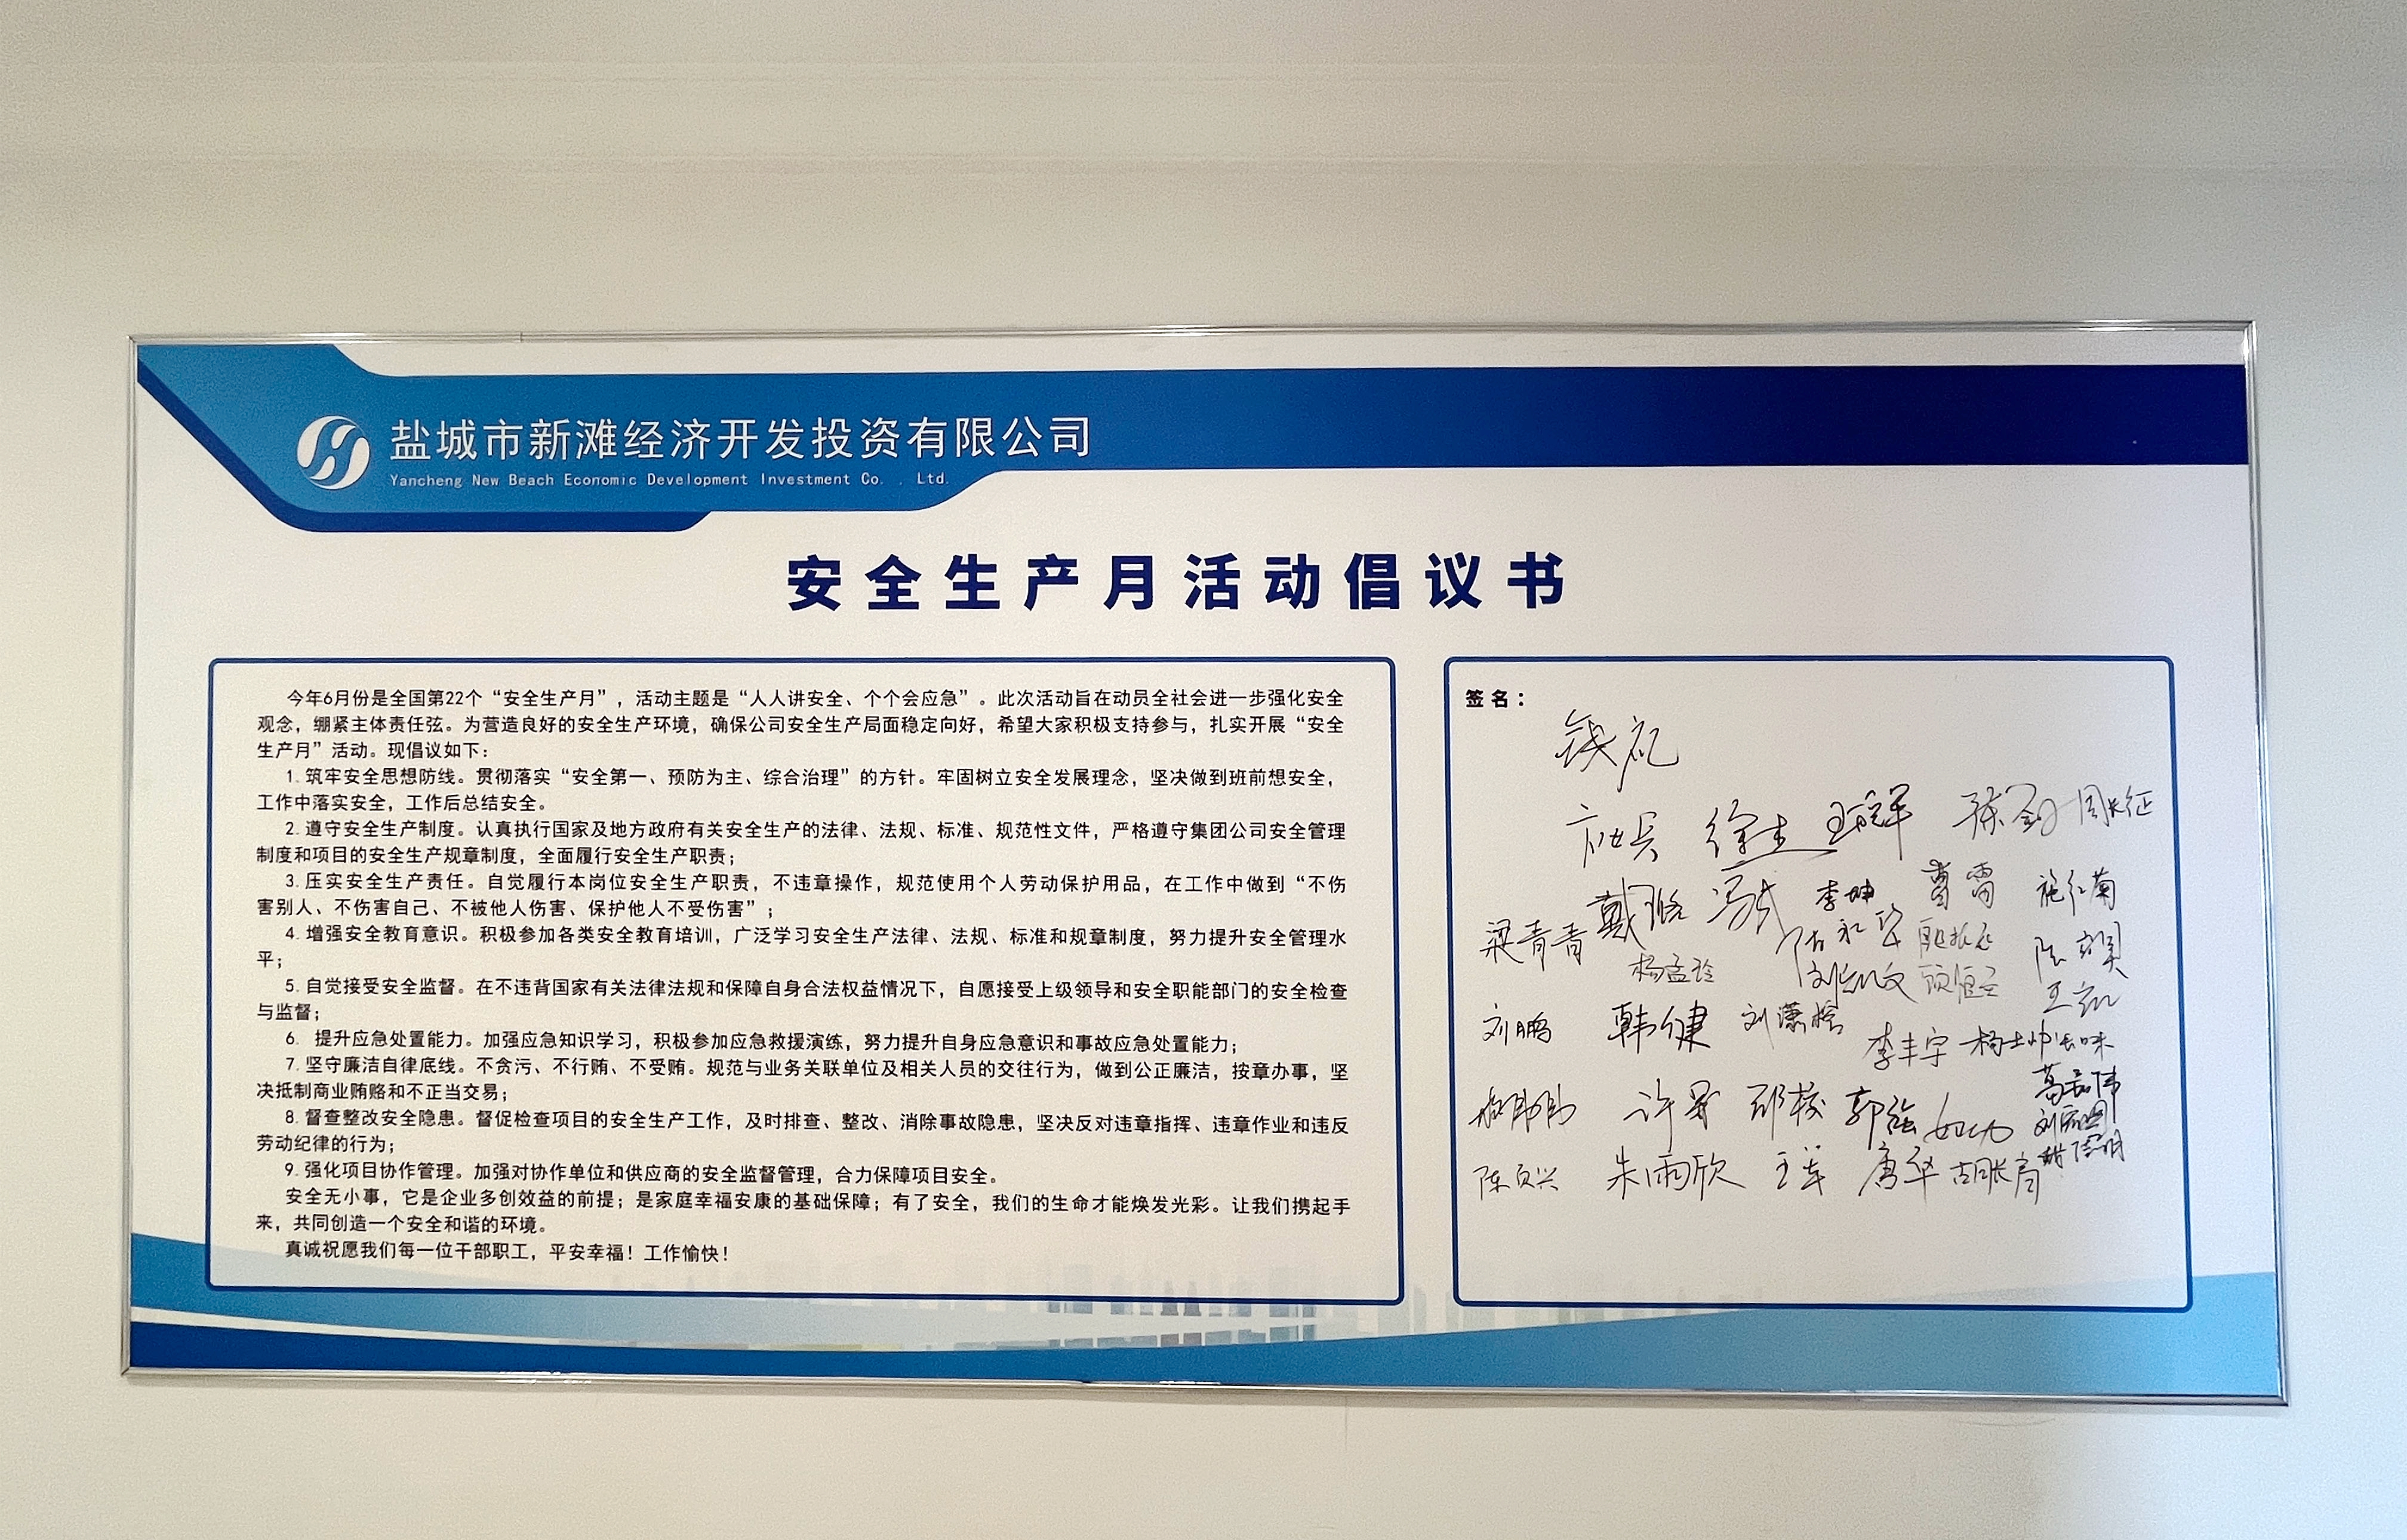 盐城市新滩经济开发投资有限公司
Yancheng New Beach Economic Development Investment Co. . Ltd.
安全生产月活动倡议书
今年6月份是全国第22个“安全生产月”，活动主题是“人人讲安全、个个会应急”。此次活动旨在动员全社会进一步强化安全
观念，绷紧主体责任弦。为营造良好的安全生产环境，确保公司安全生产局面稳定向好，希望大家积极支持参与，扎实开展“安全
生产月”活动。现倡议如下：
1.筑牢安全思想防线。贯彻落实“安全第一、预防为主、综合治理”的方针。牢固树立安全发展理念，坚决做到班前想安全，
工作中落实安全，工作后总结安全。
2.遵守安全生产制度。认真执行国家及地方政府有关安全生产的法律、法规、标准、规范性文件，严格遵守集团公司安全管理
制度和项目的安全生产规章制度，全面履行安全生产职责；
3.压实安全生产责任。自觉履行本岗位安全生产职责，不违章操作，规范使用个人劳动保护用品，在工作中做到“不伤
害别人、不伤害自己、不被他人伤害、保护他人不受伤害”；
4.增强安全教育意识。积极参加各类安全教育培训，广泛学习安全生产法律、法规、标准和规章制度，努力提升安全管理水
平；
5.自觉接受安全监督。在不违背国家有关法律法规和保障自身合法权益情况下，自愿接受上级领导和安全职能部门的安全检查
与监督；
6. 提升应急处置能力。加强应急知识学习，积极参加应急救援演练，努力提升自身应急意识和事故应急处置能力；
7.坚守廉洁自律底线。不贪污、不行贿、不受贿。规范与业务关联单位及相关人员的交往行为，做到公正廉洁，按章办事，坚
决抵制商业贿赂和不正当交易；
8.督查整改安全隐患。督促检查项目的安全生产工作，及时排查、整改、消除事故隐患，坚决反对违章指挥、违章作业和违反
劳动纪律的行为；
9.强化项目协作管理。加强对协作单位和供应商的安全监督管理，合力保障项目安全。
安全无小事，它是企业多创效益的前提；是家庭幸福安康的基础保障；有了安全，我们的生命才能焕发光彩。让我们携起手
来，共同创造一个安全和谐的环境。
真诚祝愿我们每一位干部职工，平安幸福！工作愉快！
签名：
周长征
李坤
施红菊
梁青青
杨孟玲
刘鹏 韩健
李丰宇
郭强
朱雨欣 王军 唐华